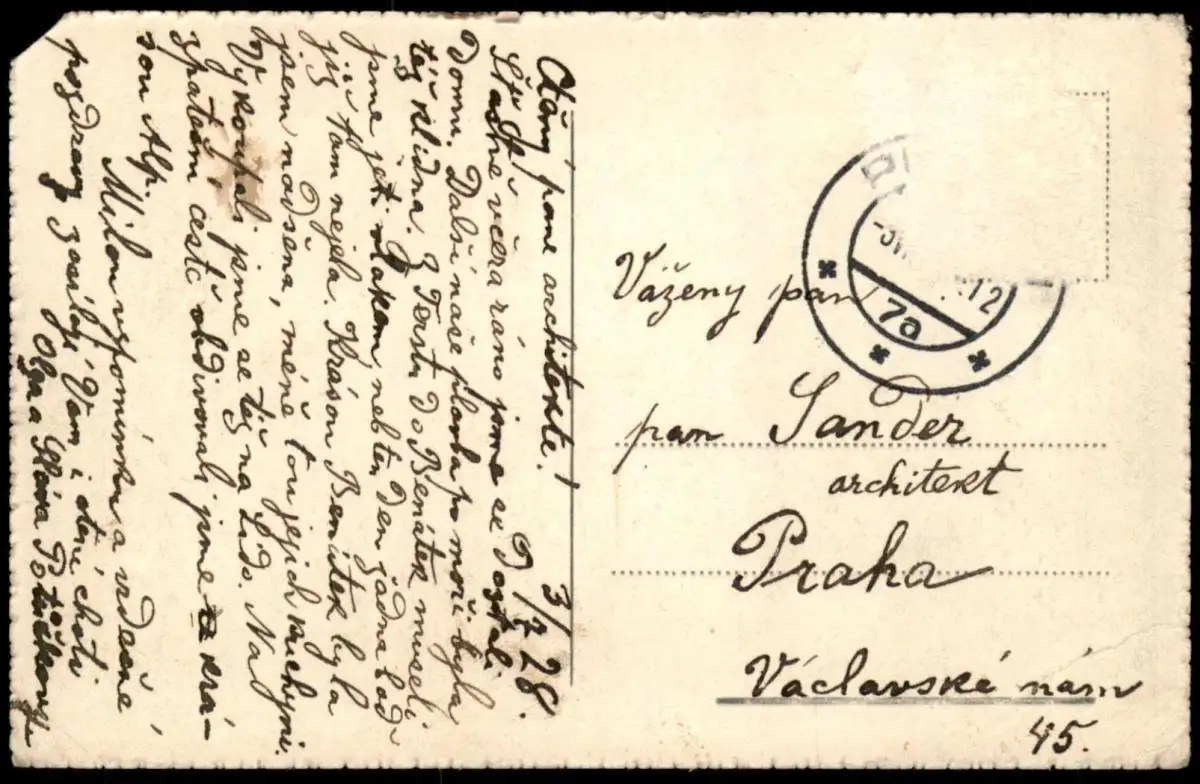 Ctěný pane architekte!
3/7 28.
Šťastně včera ráno jsme se dostali
domu. Další naše plavba po moři byla
též klidna. Z Terstu do Benátek museli
jsme jeti vlakem, neb ten den žádna loď
již tam nejela. Krásou Benátek byla
jsem nadšena, méně tou jejich kuchyni.
Vykoupali jsme se též na Lido. Na
zpateční cestě obdivovali jsme krá-
sou Alp.
Milou vzpomínku a srdečné
pozdravy zasílají Vám i ctěné choti
Olga a
Vážený pan
pan Sander
architekt
Praha
Václavské nám
45.
7a
12